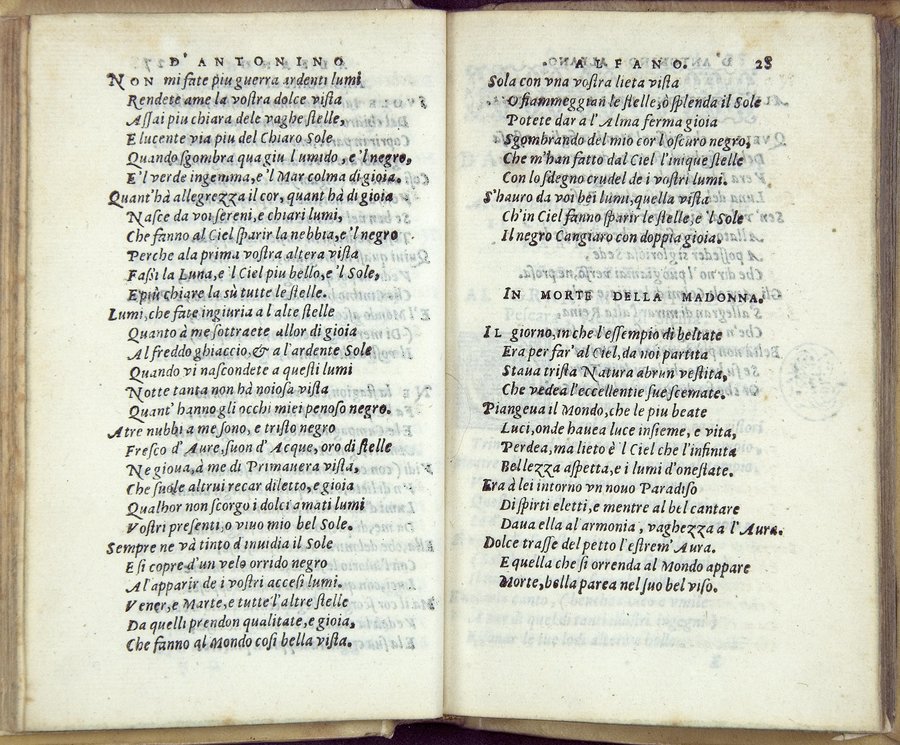 D'ANTONINO
NON mi fate piu guerra ardenti lumi
Rendete a me la vostra dolce vista
Assai piu chiara de le vaghe stelle,
E lucente via piu del Chiaro Sole
Quando sgombra qua giu l'umido, e'l negro,
E'l verde ingemma, e'l Mar colma di gioia.
Quant'hà allegrezza il cor, quant'hà di gioia
Nasce da voi sereni, e chiari lumi,
Che fanno al Ciel sparir la nebbia, e'l negro
Perche a la prima vostra altera vista
Fassi la Luna, e'l Ciel piu bello, e'l Sole,
E più chiare la sù tutte le stelle.
Lumi, che fate ingiuria a l'alte stelle
Quanto à me sottraete allor di gioia
Al freddo ghiaccio, & a l'ardente Sole
Quando vi nascondete a questi lumi
Notte tanta non hà noiosa vista
Quant'hanno gli occhi miei penoso negro.
Atre nubbi a me sono, e tristo negro
Fresco d'Aure, suon d'Acque, oro di stelle
Ne gioua, à me di Primauera vista,
Che suole altrui recar diletto, e gioia
Qualhor non scorgo i dolci amati lumi
Vostri presenti, o viuo mio bel Sole.
Sempre ne và tinto d'inuidia il Sole
E si copre d'un velo orrido negro
A l'apparir de i vostri accesi lumi.
Vener, e Marte, e tutte l'altre stelle
Da quelli prendon qualitate, e gioia,
Che fanno al Mondo cosi bella vista.
ALFANO. 28
Sola con vna vostra lieta vista
O fiammeggian le stelle, ò splenda il Sole
Potete dar a l'Alma ferma gioia
Sgombrando del mio cor l'oscuro negro,
Che m'han fatto dal Ciel l'inique stelle
Con lo sdegno crudel de i vostri lumi.
S'hauro da voi bei lumi, quella vista
Ch'in Ciel fanno sparir le stelle, e'l Sole
Il negro Cangiaro con doppia gioia.
IN MORTE DELLA MADONNA.
IL giorno, in che l'essempio di beltate
Era per far' al Ciel, da noi partita
Staua trista Natura a brun vestita,
Che vedea l'eccellentie sue scemate.
Piangeua il Mondo, che le piu beate
Luci, onde hauea luce insieme, e vita,
Perdea, ma lieto è l Ciel che l'infinita
Bellezza aspetta, e i lumi d'onestate.
Era à lei intorno vn nouo Paradiso
Di spirti eletti, e mentre al bel cantare
Daua ella al armonia, vaghezza a l'Aura.
Dolce trasse del petto l'estrem'Aura.
E quella che si orrenda al Mondo appare
Morte, bella parea nel suo bel viso.